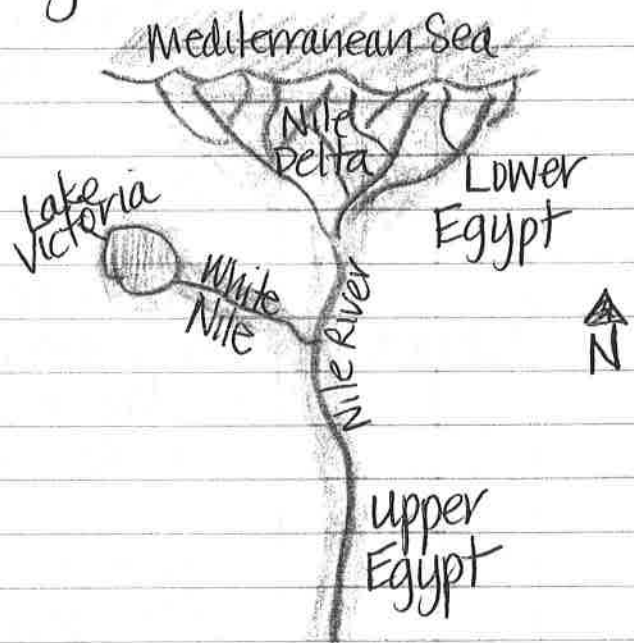 Mediterranean Sea
Nile
Delta
Lower
Egypt
Lake
Victoria
White
Nile
Nile River
N
Upper
Egypt